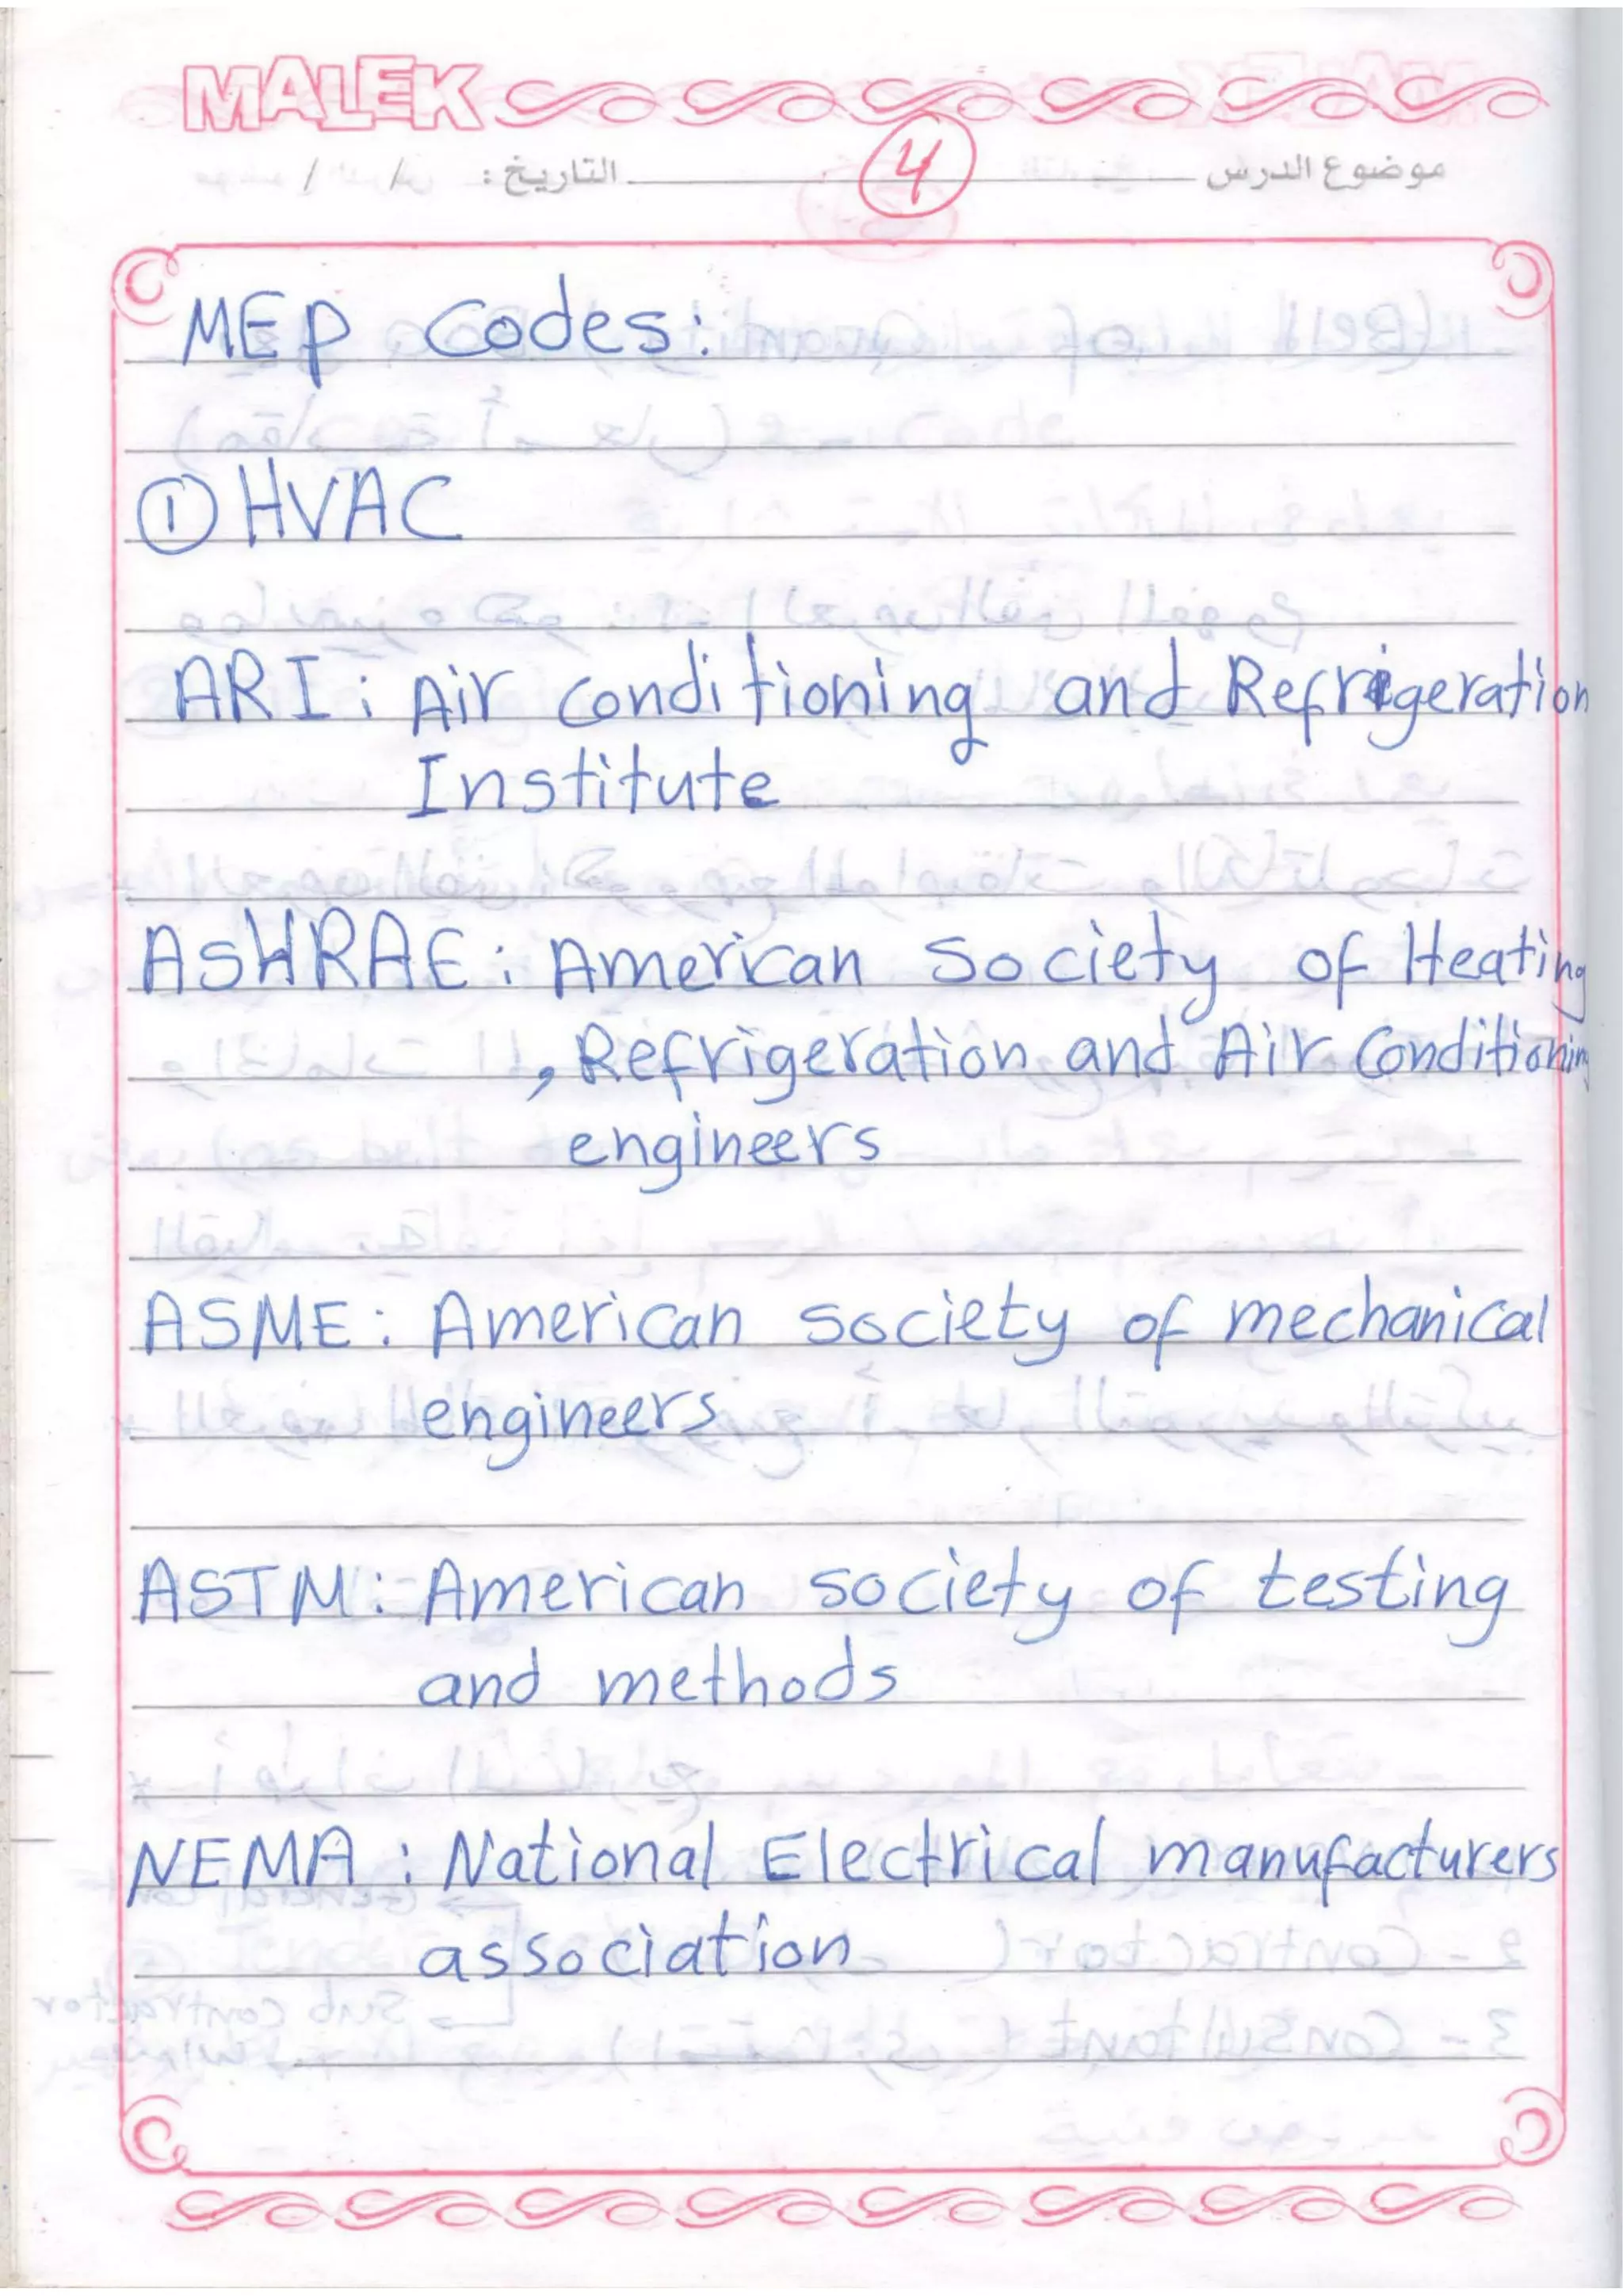 MALEK
موضوع الدرس 4 التاريخ: / /
MEP Codes:
① HVAC
ARI: Air conditioning and Refrigeration
Institute
ASHRAE: American Society of Heating
, Refrigeration and Air Conditioning
engineers
ASME: American society of mechanical
engineers
ASTM: American society of testing
and methods
NEMA: National Electrical manufacturers
association